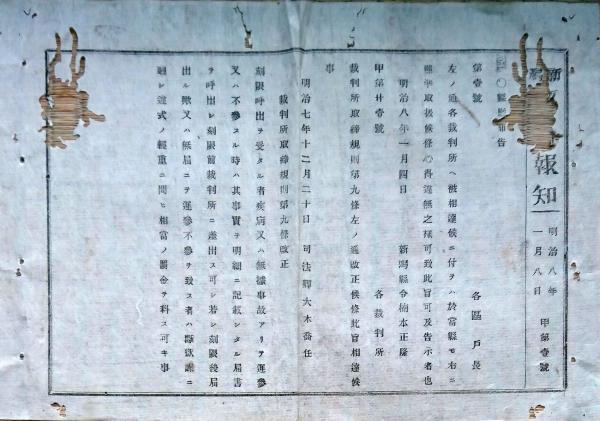 報知
明治八年
一月八日
甲第壹號
第壹號
各區戸長
左ノ通各裁判所ヘ被相達候ニ付テハ於當縣モ右ニ
准シ取扱候條心得違無之樣可致此旨可及告示者也
明治八年一月四日 新潟縣令楠本正隆
甲第廿壹號 各裁判所
裁判所取締規則第九條左ノ通改正候條此旨相達候
事
明治七年十二月二十日 司法卿大木喬任
裁判所取締規則第九條改正
刻限呼出ヲ受タル者疾病又ハ無據事故アリテ遲參
又ハ不參スル時ハ其事實ヲ明細ニ記載シタル屆書
ヲ呼出シ刻限前裁判所ニ差出ス可シ若シ刻限後屆
出ル歟又ハ無屆ニテ遲參不參ヲ致ス者ハ
違式ノ輕重ニ問ヒ相當ノ罰金ヲ科ス可キ事